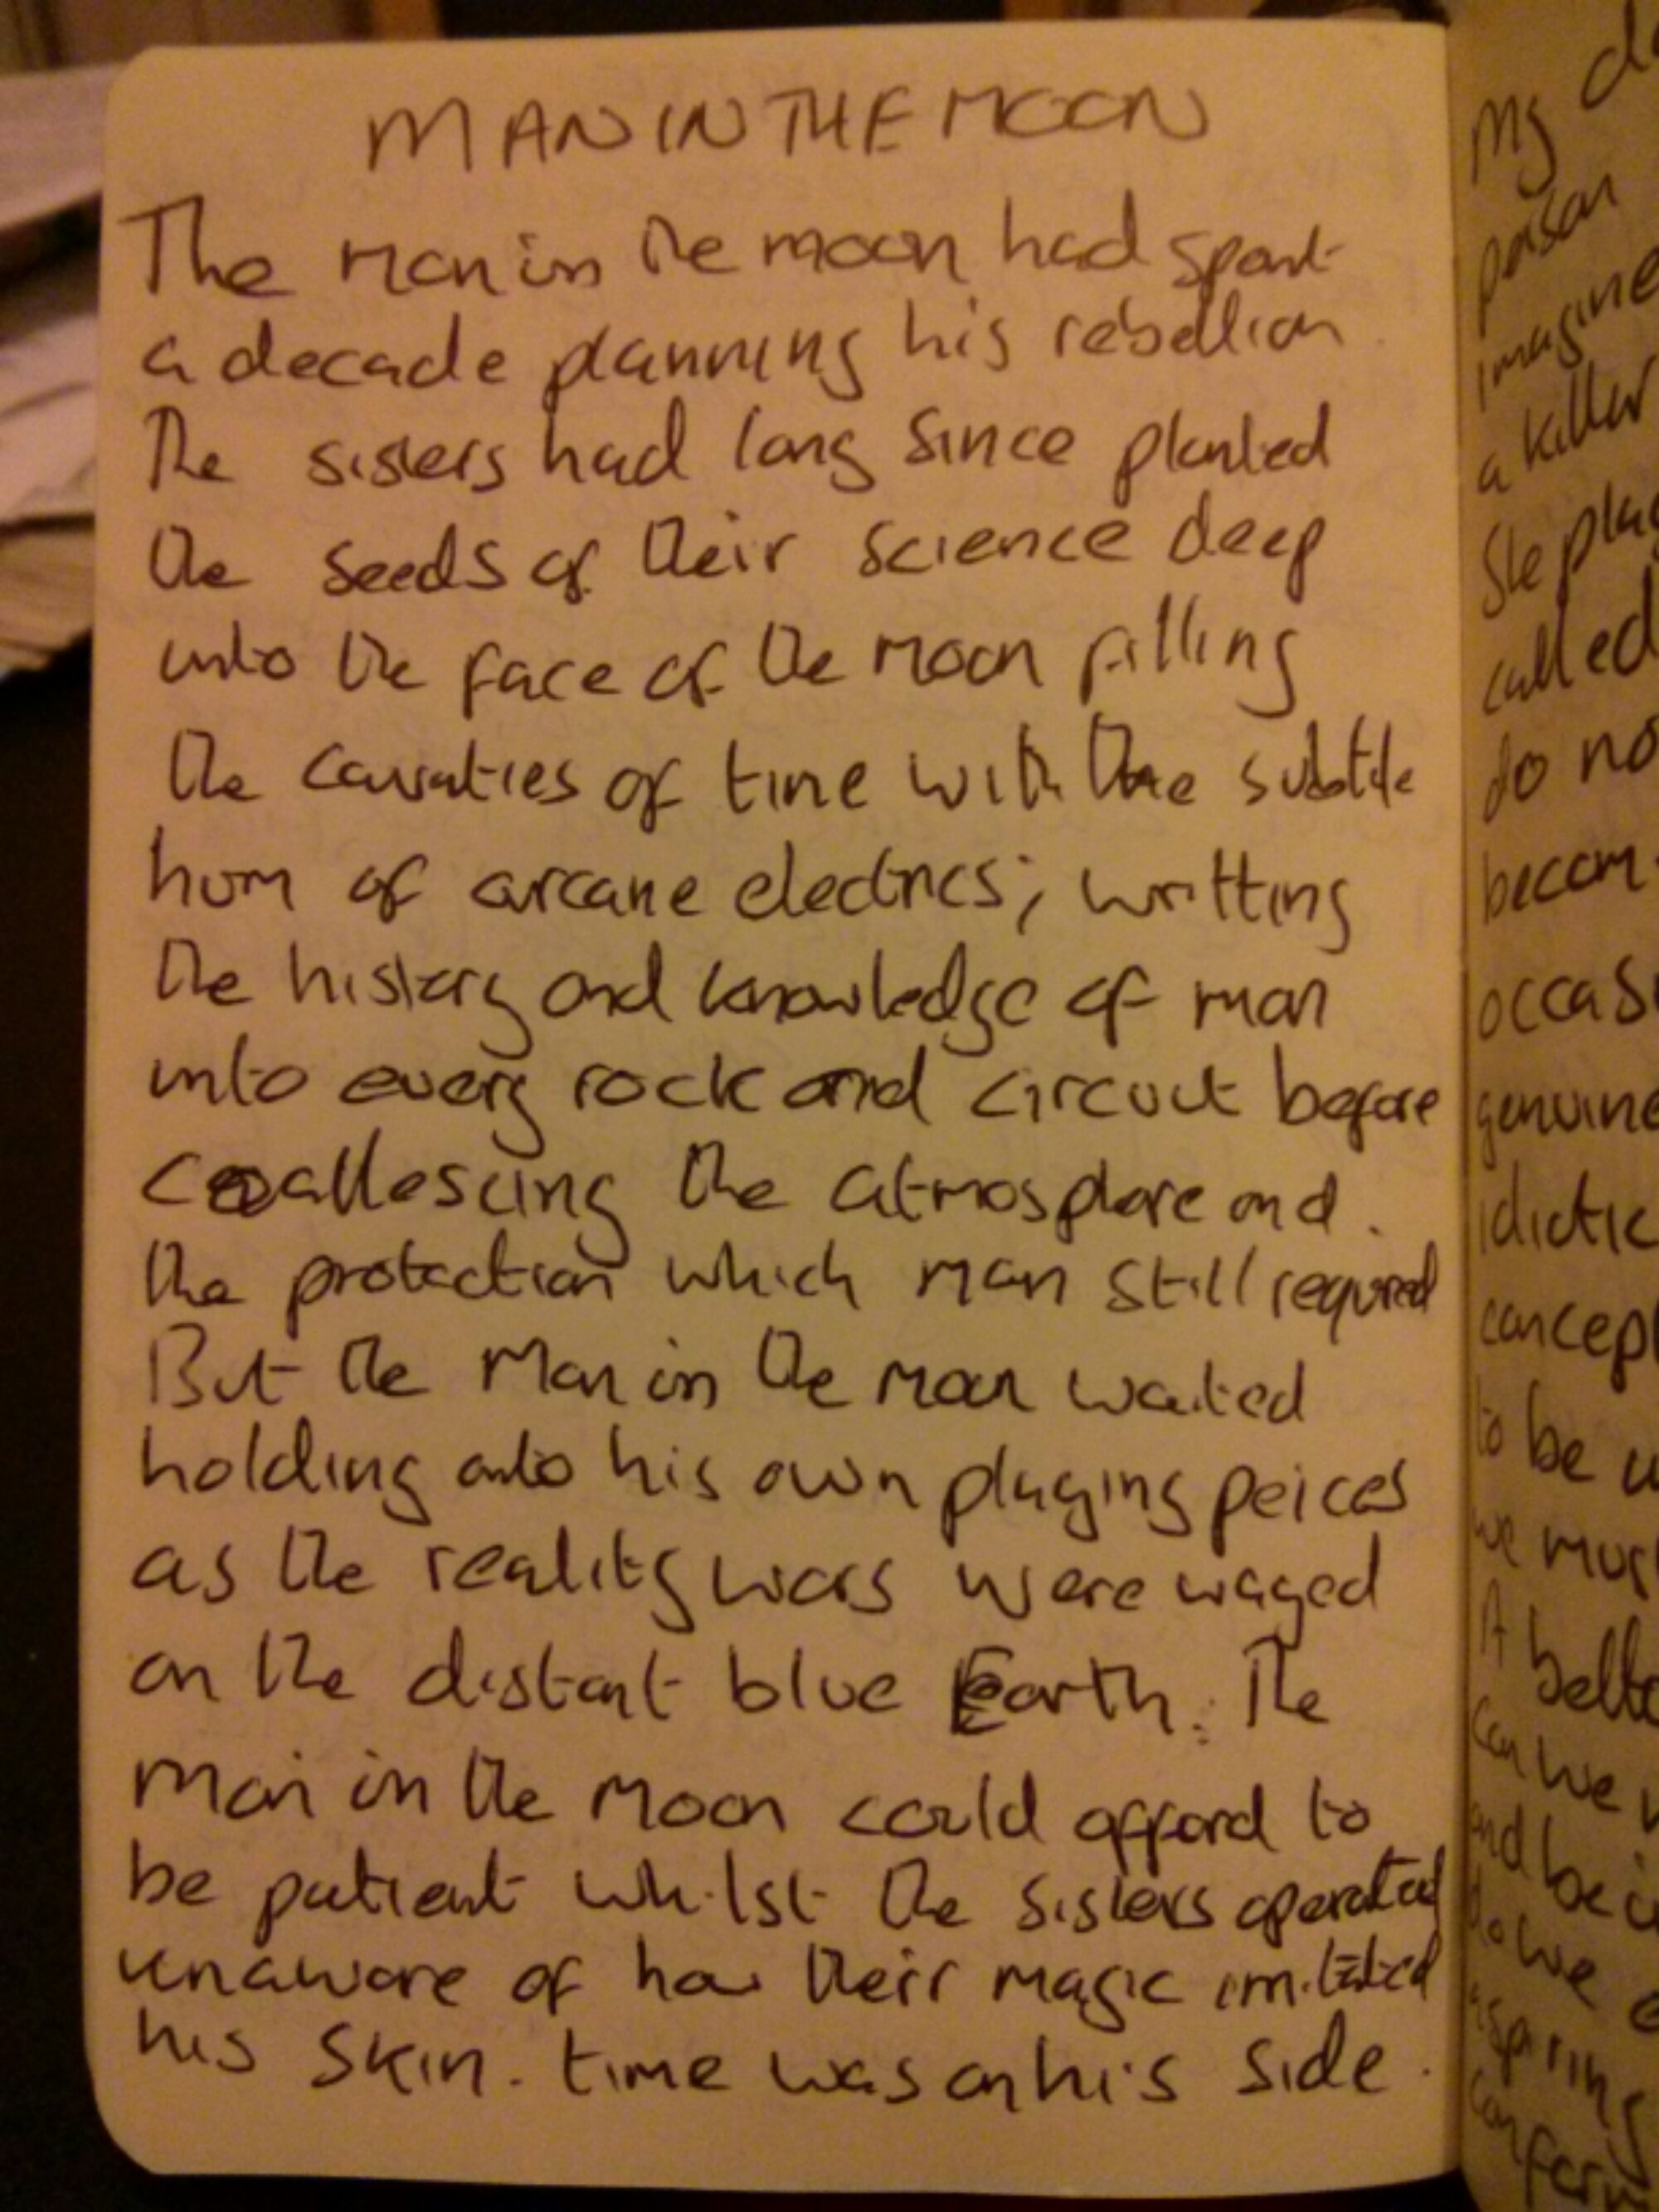 MAN IN THE MOON
The man in the moon had spent
a decade planning his rebellion.
The sisters had long since planted
the seeds of their science deep
into the face of the moon filling
the cavaties of time with the subtle
hum of arcane electrics; writting
the history and knowledge of man
into every rock and circuit before
coallescing the atmosphere and
the protection which man still required
But the Man in the moon waited
holding onto his own playing peices
as the reality wars were waged
on the distant blue Earth. The
man in the Moon could afford to
be patient whilst the sisters operated
unaware of how their magic imitated
his skin. time was on his side.
My
person
imagine
a killer
She
called
do
genuine
to be
we
A
can we
and be
do we